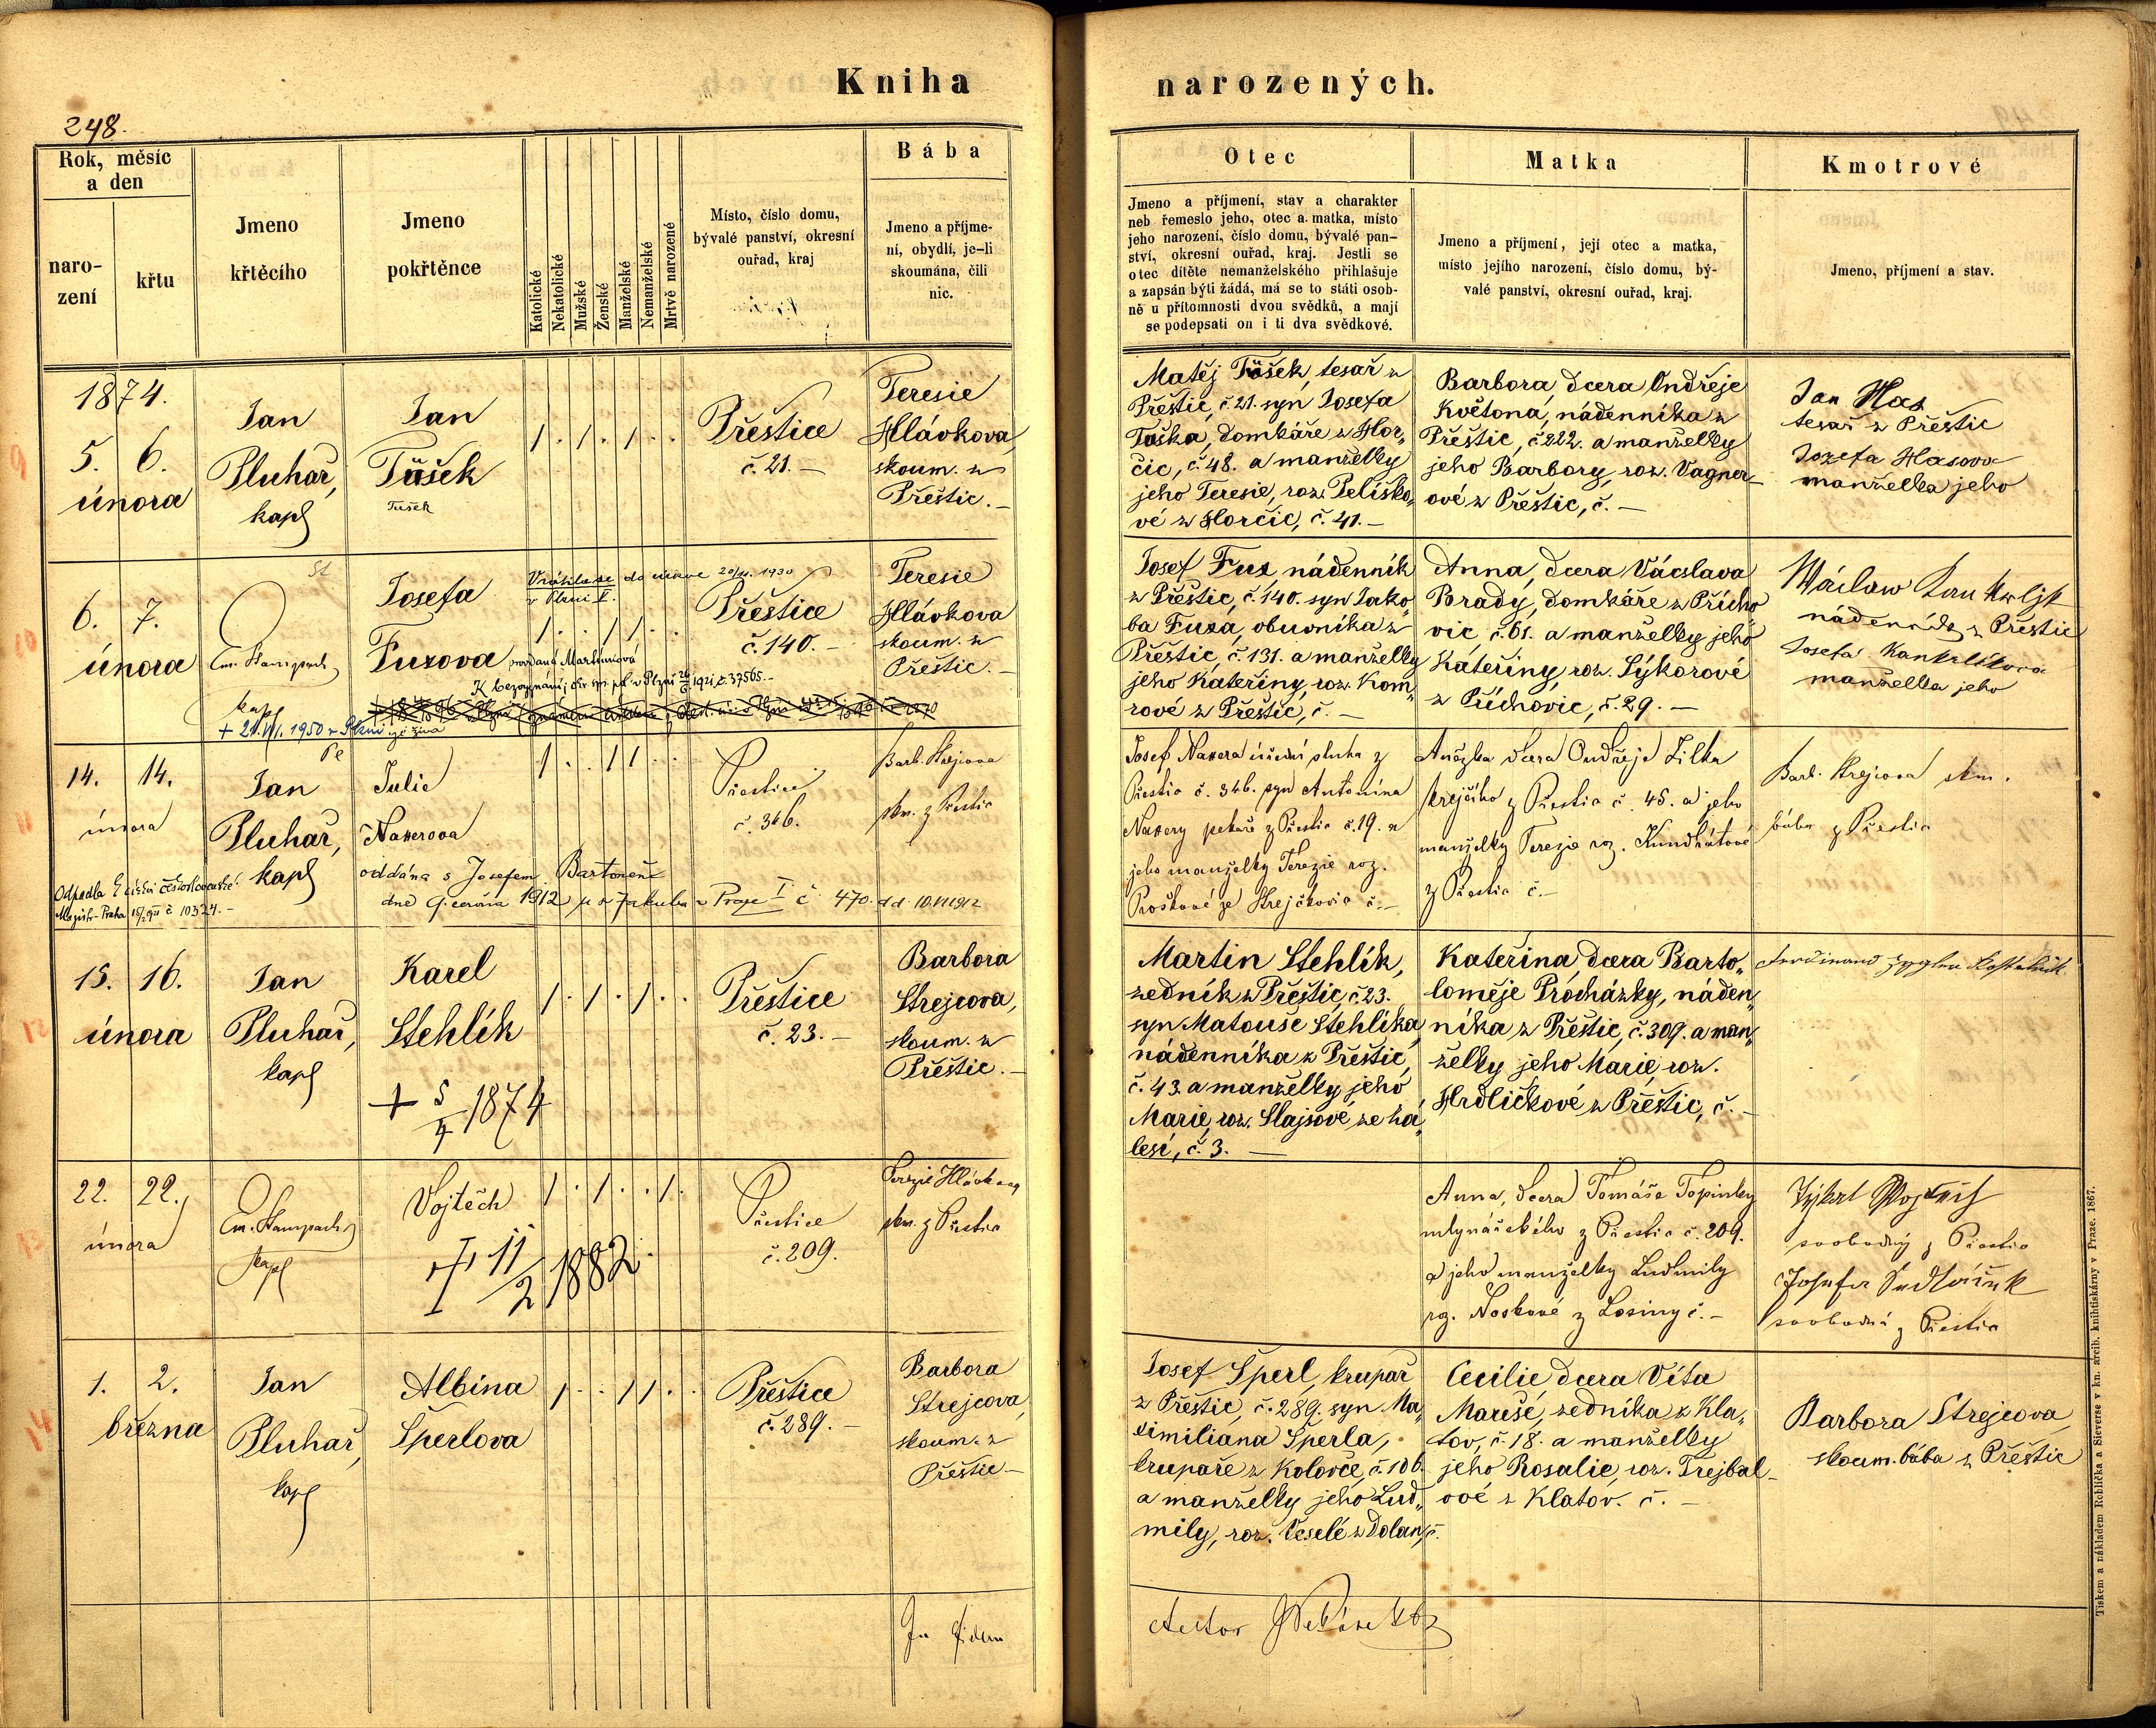 Kniha narozených.
248.
Rok, měsíc
a den
naro-
zení
křtu
Jmeno
křtěcího
Jmeno
pokřtěnce
Katolické
Nekatolické
Mužské
Ženské
Manželské
Nemanželské
Mrtvě narozené
Místo, číslo domu,
bývalé panství, okresní
ouřad, kraj
Bába
Jmeno a příjme-
ní, obydlí, je-li
skoumána, čili
nic.
Otec
Jmeno a příjmení, stav a charakter
neb řemeslo jeho, otec a matka, místo
jeho narození, číslo domu, bývalé pan-
ství, okresní ouřad, kraj. Jestli se
otec dítěte nemanželského přihlašuje
a zapsán býti žádá, má se to státi osob-
ně u přítomnosti dvou svědků, a mají
se podepsati on i ti dva svědkové.
Matka
Jmeno a příjmení, její otec a matka,
místo jejího narození, číslo domu, bý-
valé panství, okresní ouřad, kraj.
Kmotrové
Jmeno, příjmení a stav.
9
1874.
5. 6.
února
Jan
Pluhař,
kapl
Jan
Tůšek
Tušek
1 . 1 . 1 . .
Přeštice
č. 21. –
Teresie
Hlávkova,
skoum. z
Přeštic. –
Matěj Tůšek, tesař z
Přeštic, č. 21. syn Josefa
Tůška, domkáře z Hor„
čic, č. 48. a manželky
jeho Teresie, roz. Peliško„
vé z Horčic, č. 41. –
Barbora, dcera Ondřeje
Květona, nádenníka z
Přeštic, č. 222. a manželky
jeho Barbory, roz. Vagner-
ové z Přeštic, č. –
Jan Has
tesař z Přeštic
Jozefa Hasova
manželka jeho
10
6. 7.
února
Em. Stampach
kapl
Josefa
Fuxova
provdaná Martínková
Vrátila se do církve 20/XI. 1930
v Plzni I.
1 . . 1 1 . .
K bezvyznání; okr. sp. pol. v Plzni 26/6. 1921, č. 37565. –
+ 21. VI. 1950 v Plzni
Přeštice
č. 140. –
Teresie
Hlávkova
skoum. z
Přeštic. –
Josef Fux, nádenník
z Přeštic, č. 140. syn Jako„
ba Fuxa, obuvníka z
Přeštic, č. 131. a manželky
jeho Kateřiny, roz. Kom„
rové z Přeštic, č. –
Anna, dcera Václava
Brady, domkáře z Přícho„
vic č. 61. a manželky jeho
Kateřiny, roz. Sýkorové
z Příchovic, č. 29. –
Wáclaw Kankrljk
nádenník z Přeštic
Josefa Kankrlíkova
manželka jeho
11
14. 14.
února
Jan
Pluhař,
kapl
Julie
Naxerova
1 . . 1 1 . .
oddána s Josefem Bartoněm
dne 9. června 1912 u sv. Jakuba v Praze I č. 470. dd. 10.VI 1912
Odpadla k církvi československé.
Magistr. Praha
Přeštice
č. 346.
Barb. Strejcova
skm. z Přeštic
Josef Naxera úřední sluha z
Přeštic č. 346. syn Antonína
Naxery pekaře z Přeštic č. 19. a
jeho manželky Terezie roz.
Proškové ze Strejčkovic č. –
Anežka dcera Ondřeje Lilka
krejčího z Přeštic č. 45. a jeho
manželky Terezie roz. Kundrátové
z Přeštic č. –
Barb. Strejcova skm.
bába z Přeštic
12
15. 16.
února
Jan
Pluhař,
kapl
Karel
Stehlík
+ 5/4 1874
1 . 1 . 1 . .
Přeštice
č. 23. –
Barbora
Strejcova,
skoum. z
Přeštic. –
Martin Stehlík,
zedník z Přeštic, č. 23.
syn Matouše Stehlíka,
nádenníka z Přeštic,
č. 43. a manželky jeho
Marie, roz. Slajsové ze Zá„
lesí, č. 3. –
Kateřina, dcera Barto„
loměje Procházky, náden„
níka z Přeštic, č. 309. a man„
želky jeho Marie, roz.
Hrdličkové z Přeštic, č. –
Ferdinand
13
22. 22.
února
Em. Stampach
kapl
Vojtěch
+ 11/2 1882
1 . 1 . . 1 .
Přeštice
č. 209.
Terezie Hlávkova
skm. z Přeštic
Anna, dcera Tomáše Topinky
mlynářského z Přeštic č. 209.
a jeho manželky Ludmily
roz. Noskové z Losiny č. –
Týkal Wojtěch
svobodný z Přeštic
Josefa Sedláček
svobodná z Přeštic
14
1. 2.
března
Jan
Pluhař,
kapl
Albina
Šperlova
1 . . 1 1 . .
Přeštice
č. 289. –
Barbora
Strejcova,
skoum. z
Přeštic –
Josef Šperl, krupař
z Přeštic, č. 289. syn Ma„
ximiliana Šperla,
krupaře z Kolovče, č. 106.
a manželky jeho Lud„
mily, roz. Veselé z Dolan, č.
Cecilie dcera Víta
Mareše, zedníka z Kla„
tov, č. 18. a manželky
jeho Rosalie, roz. Trejbal-
ové z Klatov. č. –
Barbora Strejcova,
skoum. bába z Přeštic
In fidem
Tiskem a nákladem Rohlíčka a Sieverse v kn. arcib. knihtiskárny v Praze. 1867.